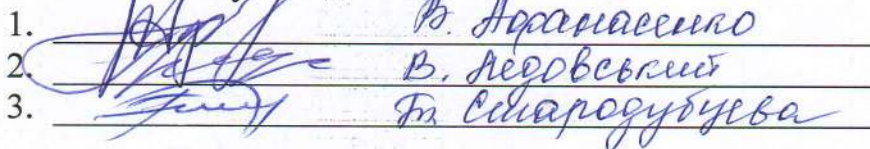 1. В. Афанасенко
2. В. Лядовський
3. Т. Стародубцева